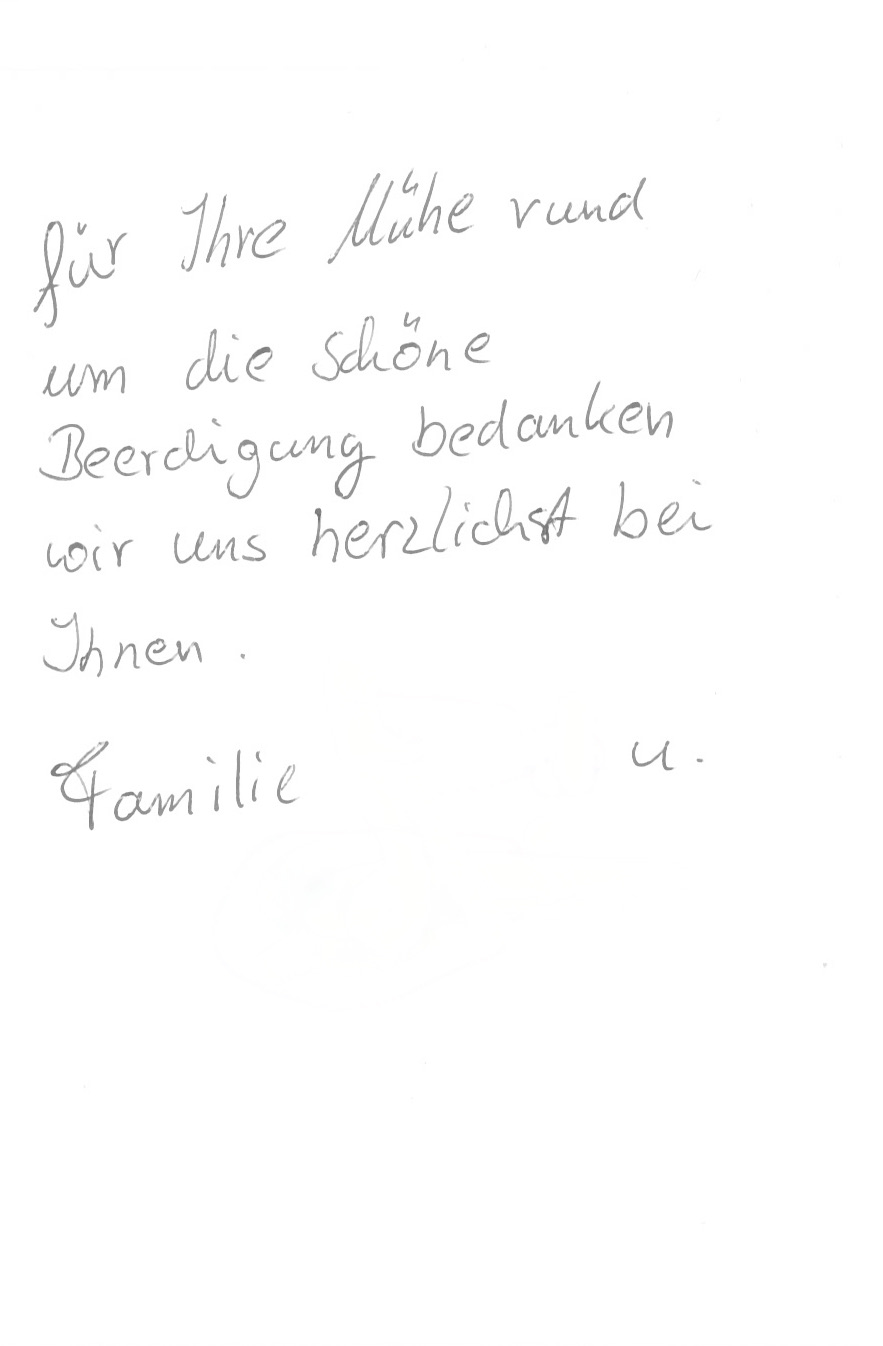 für Ihre Mühe rund
um die schöne
Beerdigung bedanken
wir uns herzlichst bei
Ihnen.
Familie u.